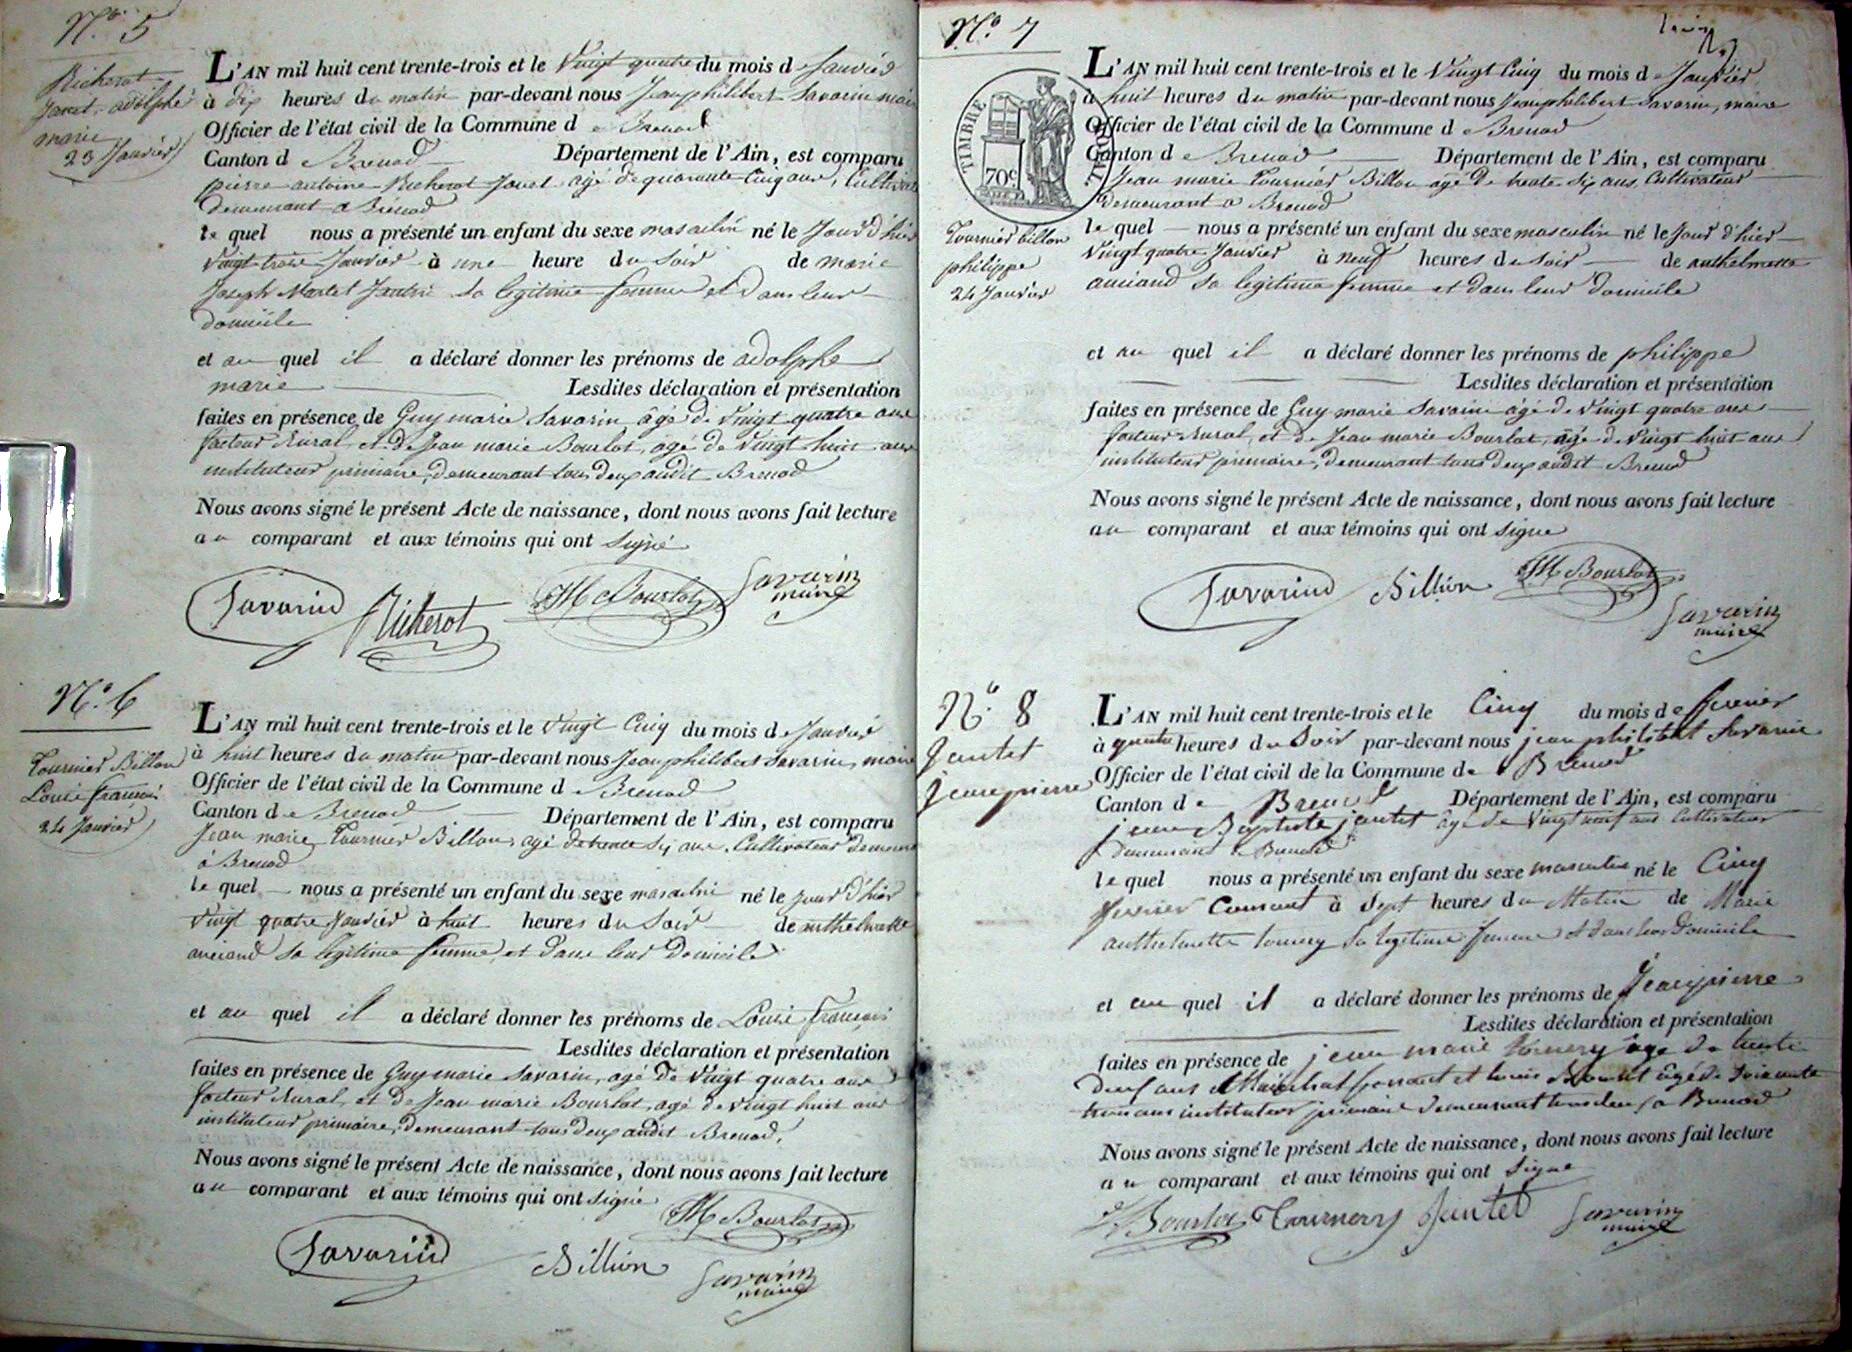 N.° 5
Richerot
Jacet, adolphe
marie
23 Janvier
L'AN mil huit cent trente-trois et le Vingt quatre du mois de Janvier
à dix heures du matin par-devant nous Jean philibert Savarin maire
Officier de l'état civil de la Commune de Brenod
Canton de Brenod Département de l'Ain, est comparu
pierre antoine Richerot Jacet agé de quarante cinq ans, Cultivateur
demeurant a Brénod
le quel nous a présenté un enfant du sexe masculin né le Jour d'hier
Vingt trois Janvier à une heure du Soir de marie
Joseph Martel Jantet sa légitime femme et dans leur
domicile
et au quel il a déclaré donner les prénoms de adolphe
marie Lesdites déclaration et présentation
faites en présence de Guy marie Savarin, âgé de Vingt quatre ans
facteur Rural, et de Jean marie Bourlot, agé de Vingt huit ans
instituteur primaire, demeurant tous deux audit Brenod
Nous avons signé le présent Acte de naissance, dont nous avons fait lecture
au comparant et aux témoins qui ont Signé
Savarin Richerot JM Bourlot Savarin
maire
N.° 6
Tournier Billon
Louis françois
24 Janvier
L'AN mil huit cent trente-trois et le Vingt Cinq du mois de Janvier
à huit heures du matin par-devant nous Jean philibert Savarin, maire
Officier de l'état civil de la Commune de Brenod
Canton de Brenod Département de l'Ain, est comparu
Jean marie Tournier Billon, agé de trente Six ans, Cultivateur demeurant
a Brenod
le quel nous a présenté un enfant du sexe masculin né le jour d'hier
Vingt quatre Janvier à huit heures du Soir de anthelmette
anciand sa légitime femme, et dans leur domicile
et au quel il a déclaré donner les prénoms de Louis françois
Lesdites déclaration et présentation
faites en présence de Guy marie Savarin, agé de Vingt quatre ans
facteur Rural, et de Jean marie Bourlot, agé de vingt huit ans
instituteur primaire, demeurant tous deux audit Brenod.
Nous avons signé le présent Acte de naissance, dont nous avons fait lecture
au comparant et aux témoins qui ont signé
JM Bourlot
Savarin Billion Savarin
maire
N.° 7
TIMBRE ROYAL
70c
Tournier billon
philippe
24 Janvier
L'AN mil huit cent trente-trois et le Vingt Cinq du mois de Janvier
à huit heures du matin par-devant nous Jean philibert Savarin, maire
Officier de l'état civil de la Commune de Brenod
Canton de Brenod Département de l'Ain, est comparu
Jean marie Tournier Billon agé de trente Six ans, Cultivateur
demeurant a Brenod
le quel nous a présenté un enfant du sexe masculin né le Jour d'hier
Vingt quatre Janvier à neuf heures du Soir de anthelmette
anciand sa legitime femme et dans leur domicile
et au quel il a déclaré donner les prénoms de philippe
Lesdites déclaration et présentation
faites en présence de Guy marie Savarin âgé de Vingt quatre ans
facteur Rural, et de Jean marie Bourlot, agé de Vingt huit ans
instituteur primaire, demeurant tous deux audit Brenod
Nous avons signé le présent Acte de naissance, dont nous avons fait lecture
au comparant et aux témoins qui ont signé
Savarin Billion JM Bourlot
Savarin
maire
N.° 8
Jantet
Jeanpierre
L'AN mil huit cent trente-trois et le Cinq du mois de fevrier
à quatre heures du Soir par-devant nous jean philibert Savarin
Officier de l'état civil de la Commune de Brenod
Canton de Brenod Département de l'Ain, est comparu
jean Baptiste jantet âgé de Vingt neuf ans Cultivateur
demeurant a Brenod
le quel nous a présenté un enfant du sexe masculin né le Cinq
fevrier Courant à Sept heures du Matin de Marie
anthelmette tournery Sa legitime femme et dans leur Domicile
et au quel il a déclaré donner les prénoms de Jeanpierre
Lesdites déclaration et présentation
faites en présence de jean marie tournery âge de trente
deux ans Maréchal ferrant et louis Bourlot âgé de Soixante
trois ans instituteur primaire demeurant tous deux a Brenod
Nous avons signé le présent Acte de naissance, dont nous avons fait lecture
au comparant et aux témoins qui ont Signé
Bourlot Tournery Jantet Savarin
maire